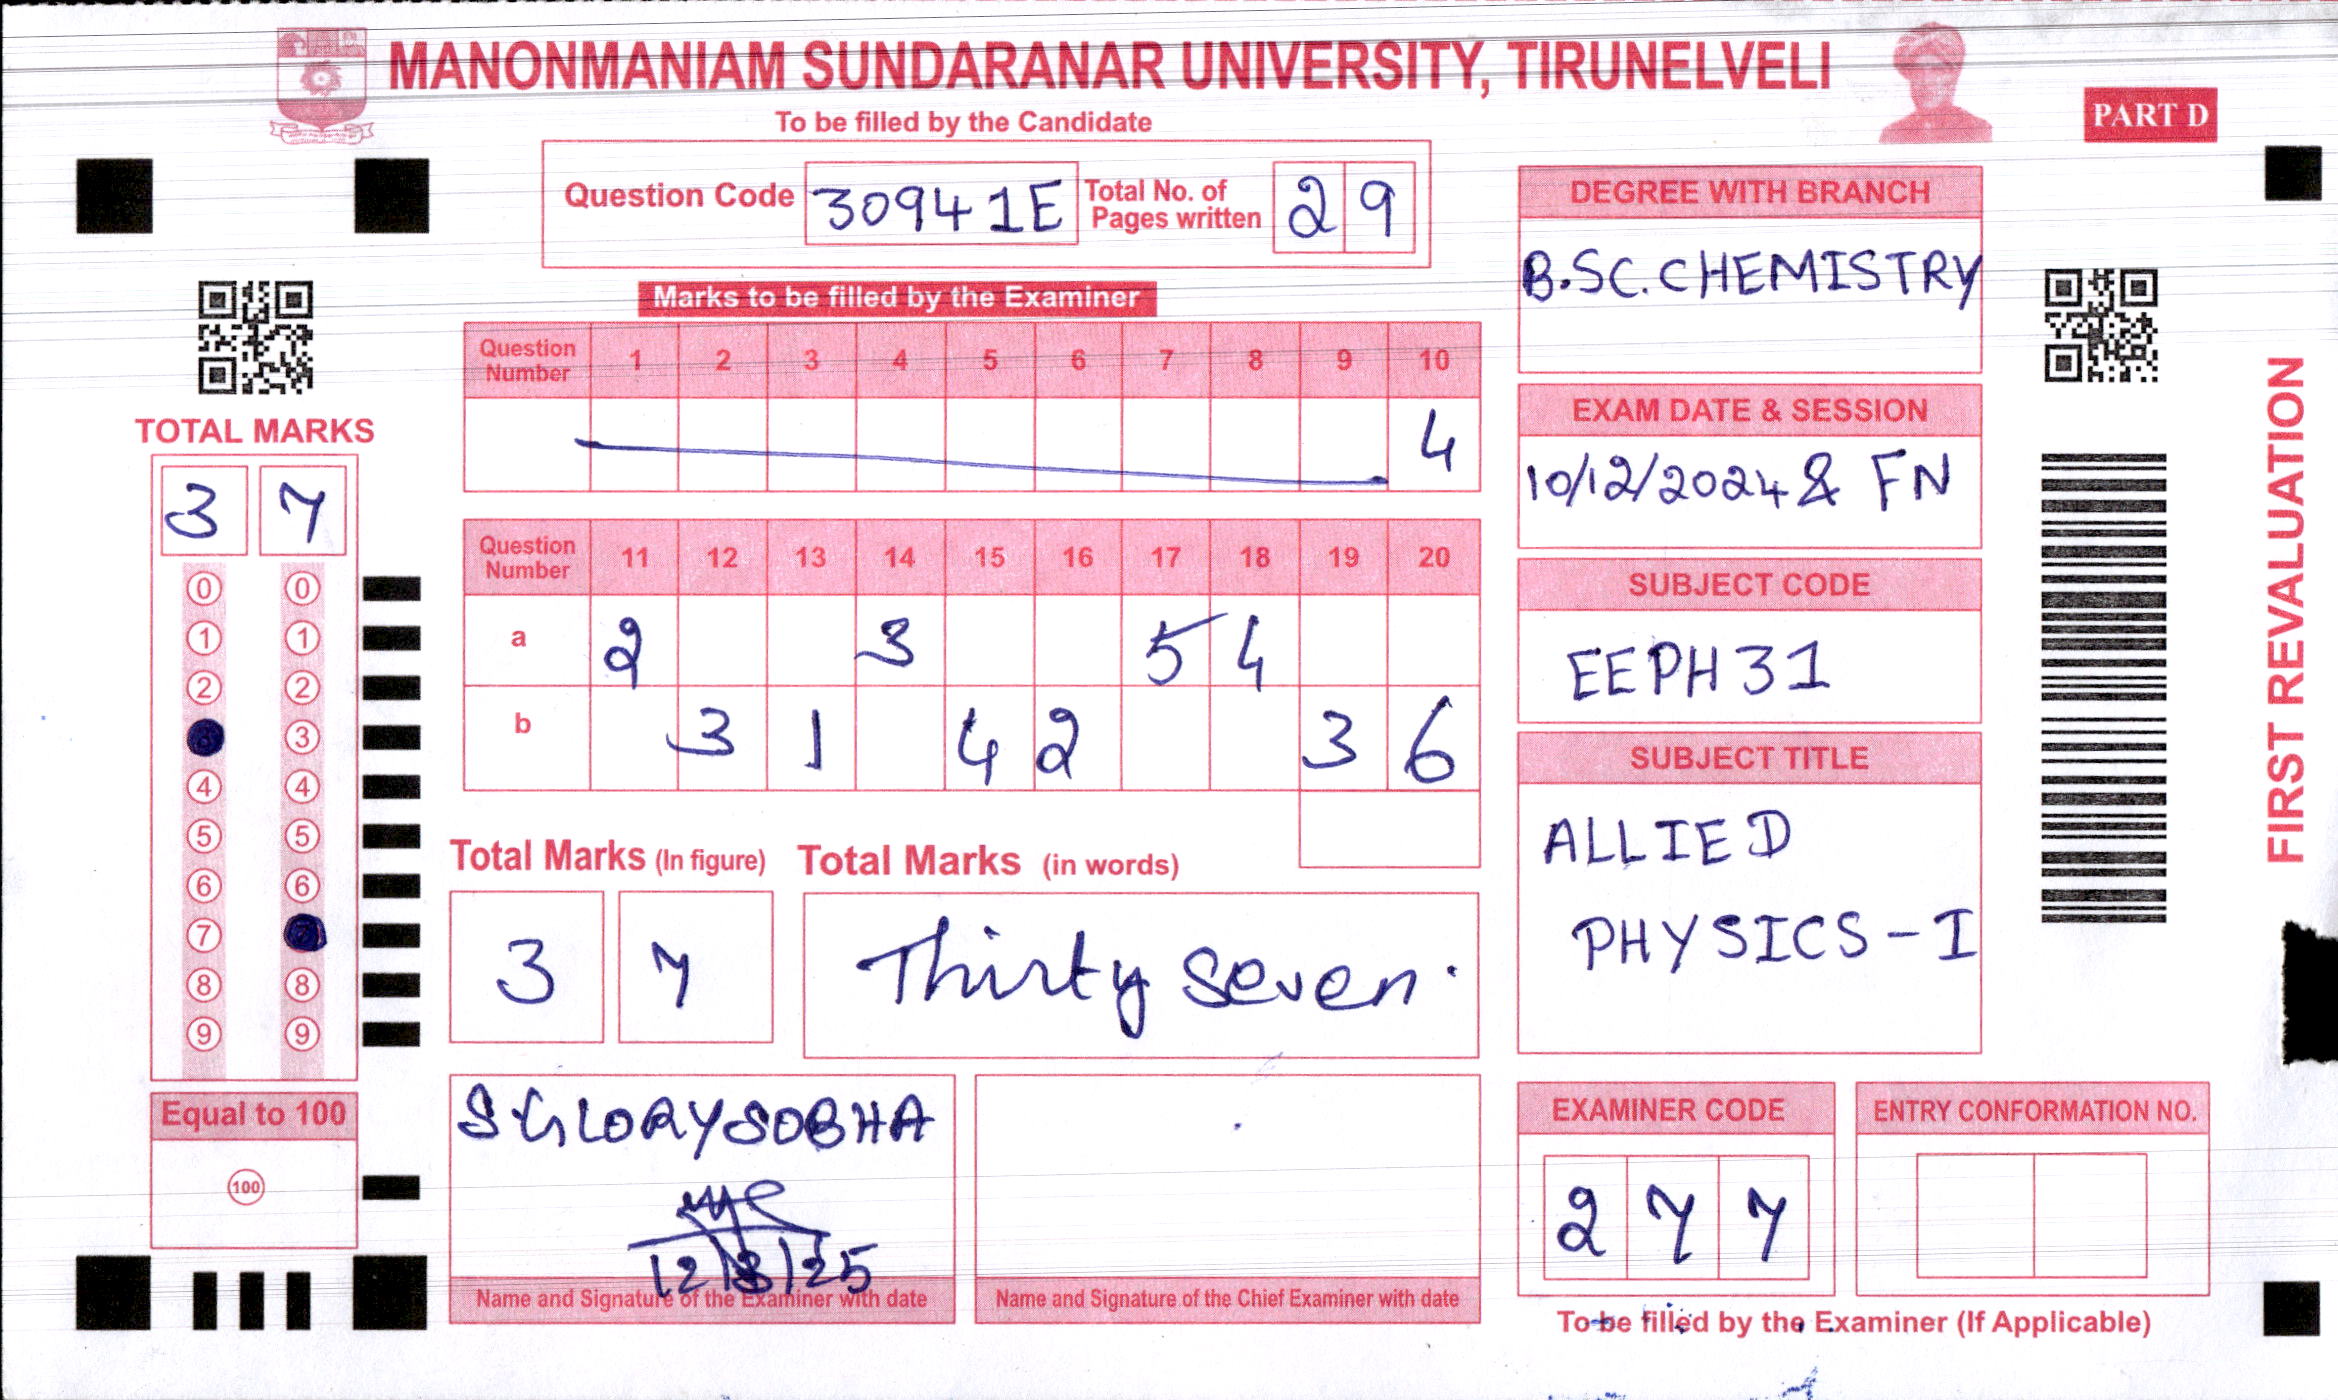 MANONMANIAM SUNDARANAR UNIVERSITY, TIRUNELVELI
PART D
To be filled by the Candidate
Question Code 30941E Total No. of Pages written 29
Marks to be filled by the Examiner
Question Number 1 2 3 4 5 6 7 8 9 10
4
Question Number 11 12 13 14 15 16 17 18 19 20
a 2 3 5 4
b 3 1 4 2 3 6
Total Marks (In figure) Total Marks (in words)
3 7 Thirty Seven.
TOTAL MARKS
3 7
0 0
1 1
2 2
3
4 4
5 5
6 6
7
8 8
9 9
Equal to 100
100
S GLORY SOBHA
12/8/25
Name and Signature of the Examiner with date
Name and Signature of the Chief Examiner with date
DEGREE WITH BRANCH
B.SC. CHEMISTRY
EXAM DATE & SESSION
10/12/2024 & FN
SUBJECT CODE
EEPH31
SUBJECT TITLE
ALLIED
PHYSICS-I
EXAMINER CODE
2 7 7
ENTRY CONFORMATION NO.
To be filled by the Examiner (If Applicable)
FIRST REVALUATION